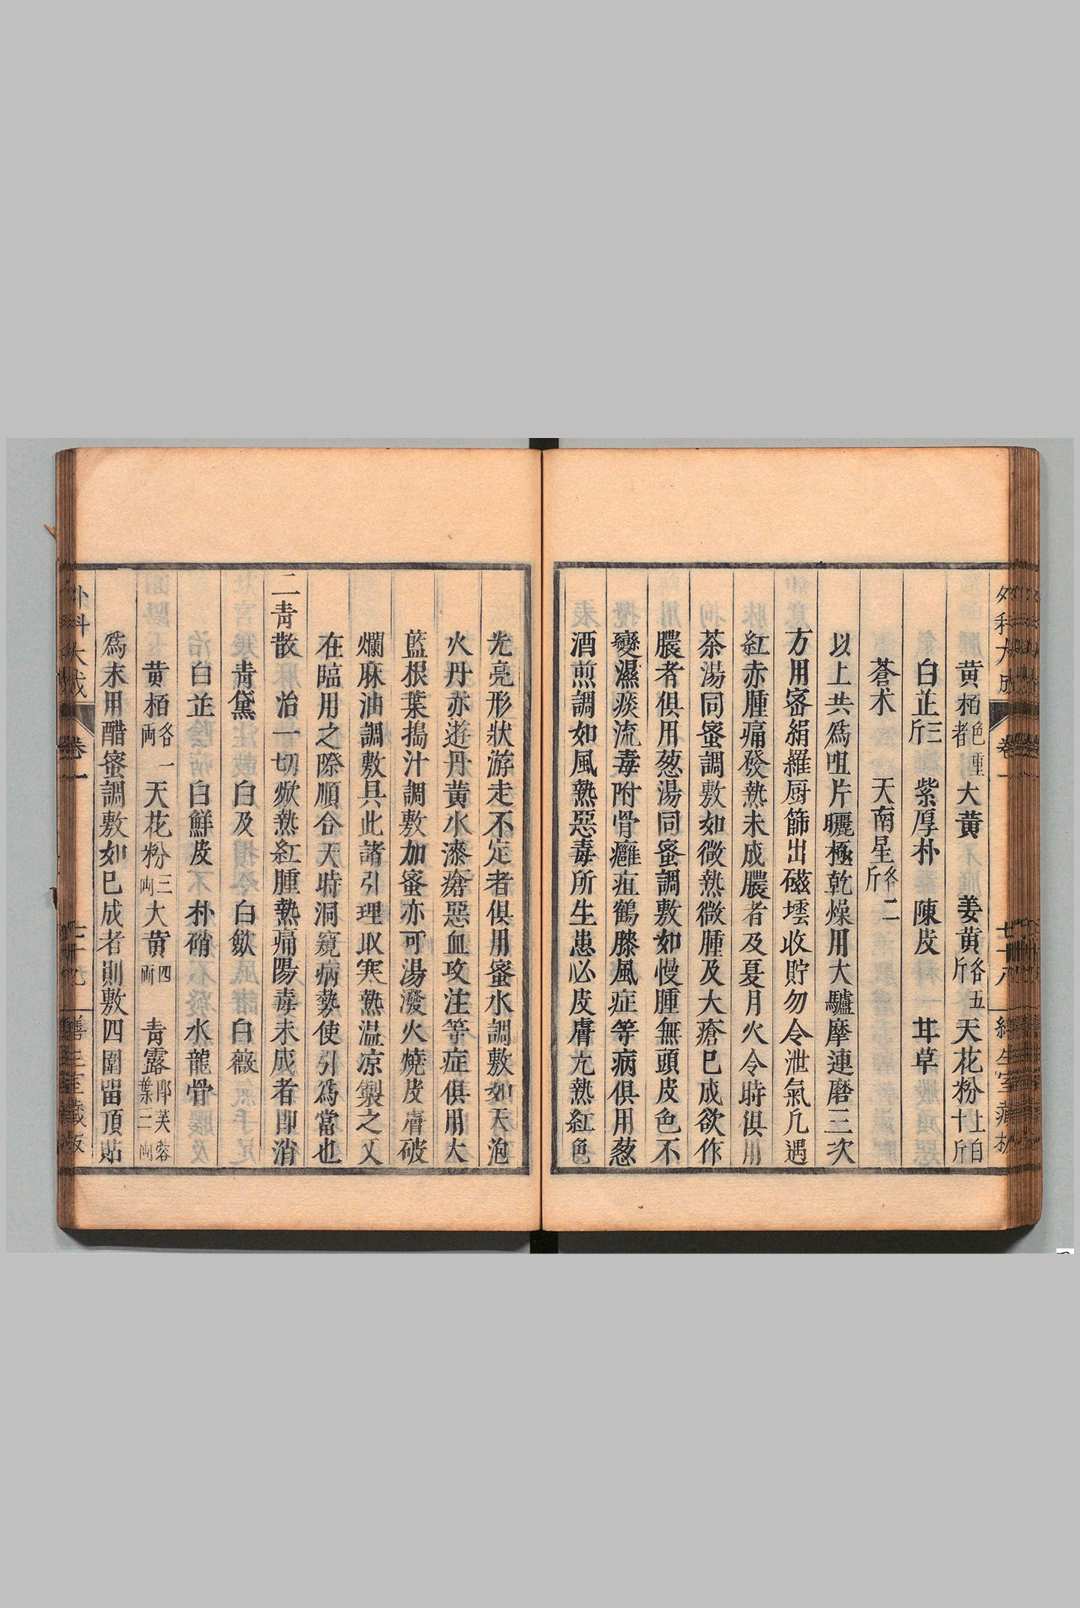 外科大成 卷一 七十八
黃栢色重者 大黃 姜黃各五斤 天花粉上白十斤
白芷三斤 紫厚朴 陳皮 甘草
蒼术 天南星各二斤
以上共爲咀片曬極乾燥用大驢摩連磨三次
方用密絹羅厨篩出磁罈收貯勿令泄氣凢遇
紅赤腫痛發熱未成膿者及夏月火令時俱用
茶湯同蜜調敷如微熱微腫及大瘡已成欲作
膿者俱用葱湯同蜜調敷如慢腫無頭皮色不
變濕痰流毒附骨癰疽鶴膝風症等病俱用葱
酒煎調如風熱惡毒所生患必皮膚亢熱紅色
光亮形狀游走不定者俱用蜜水調敷如天泡
火丹赤遊丹黃水漆瘡惡血攻注等症俱用大
藍根葉搗汁調敷加蜜亦可湯潑火燒皮膚破
爛麻油調敷具此諸引理取寒熱温凉製之又
在臨用之際順合天時洞窺病勢使引爲當也
二青散 治一切焮熱紅腫熱痛陽毒未成者即消
靑黛 白及 白歛 白薇
白芷 白鮮皮 朴硝 水龍骨
黃栢各一兩 天花粉三兩 大黃四兩 靑露卽芙蓉葉二兩
爲末用醋蜜調敷如已成者則敷四圍留頂貼
外科大成 卷一 七十九 善王室藏板